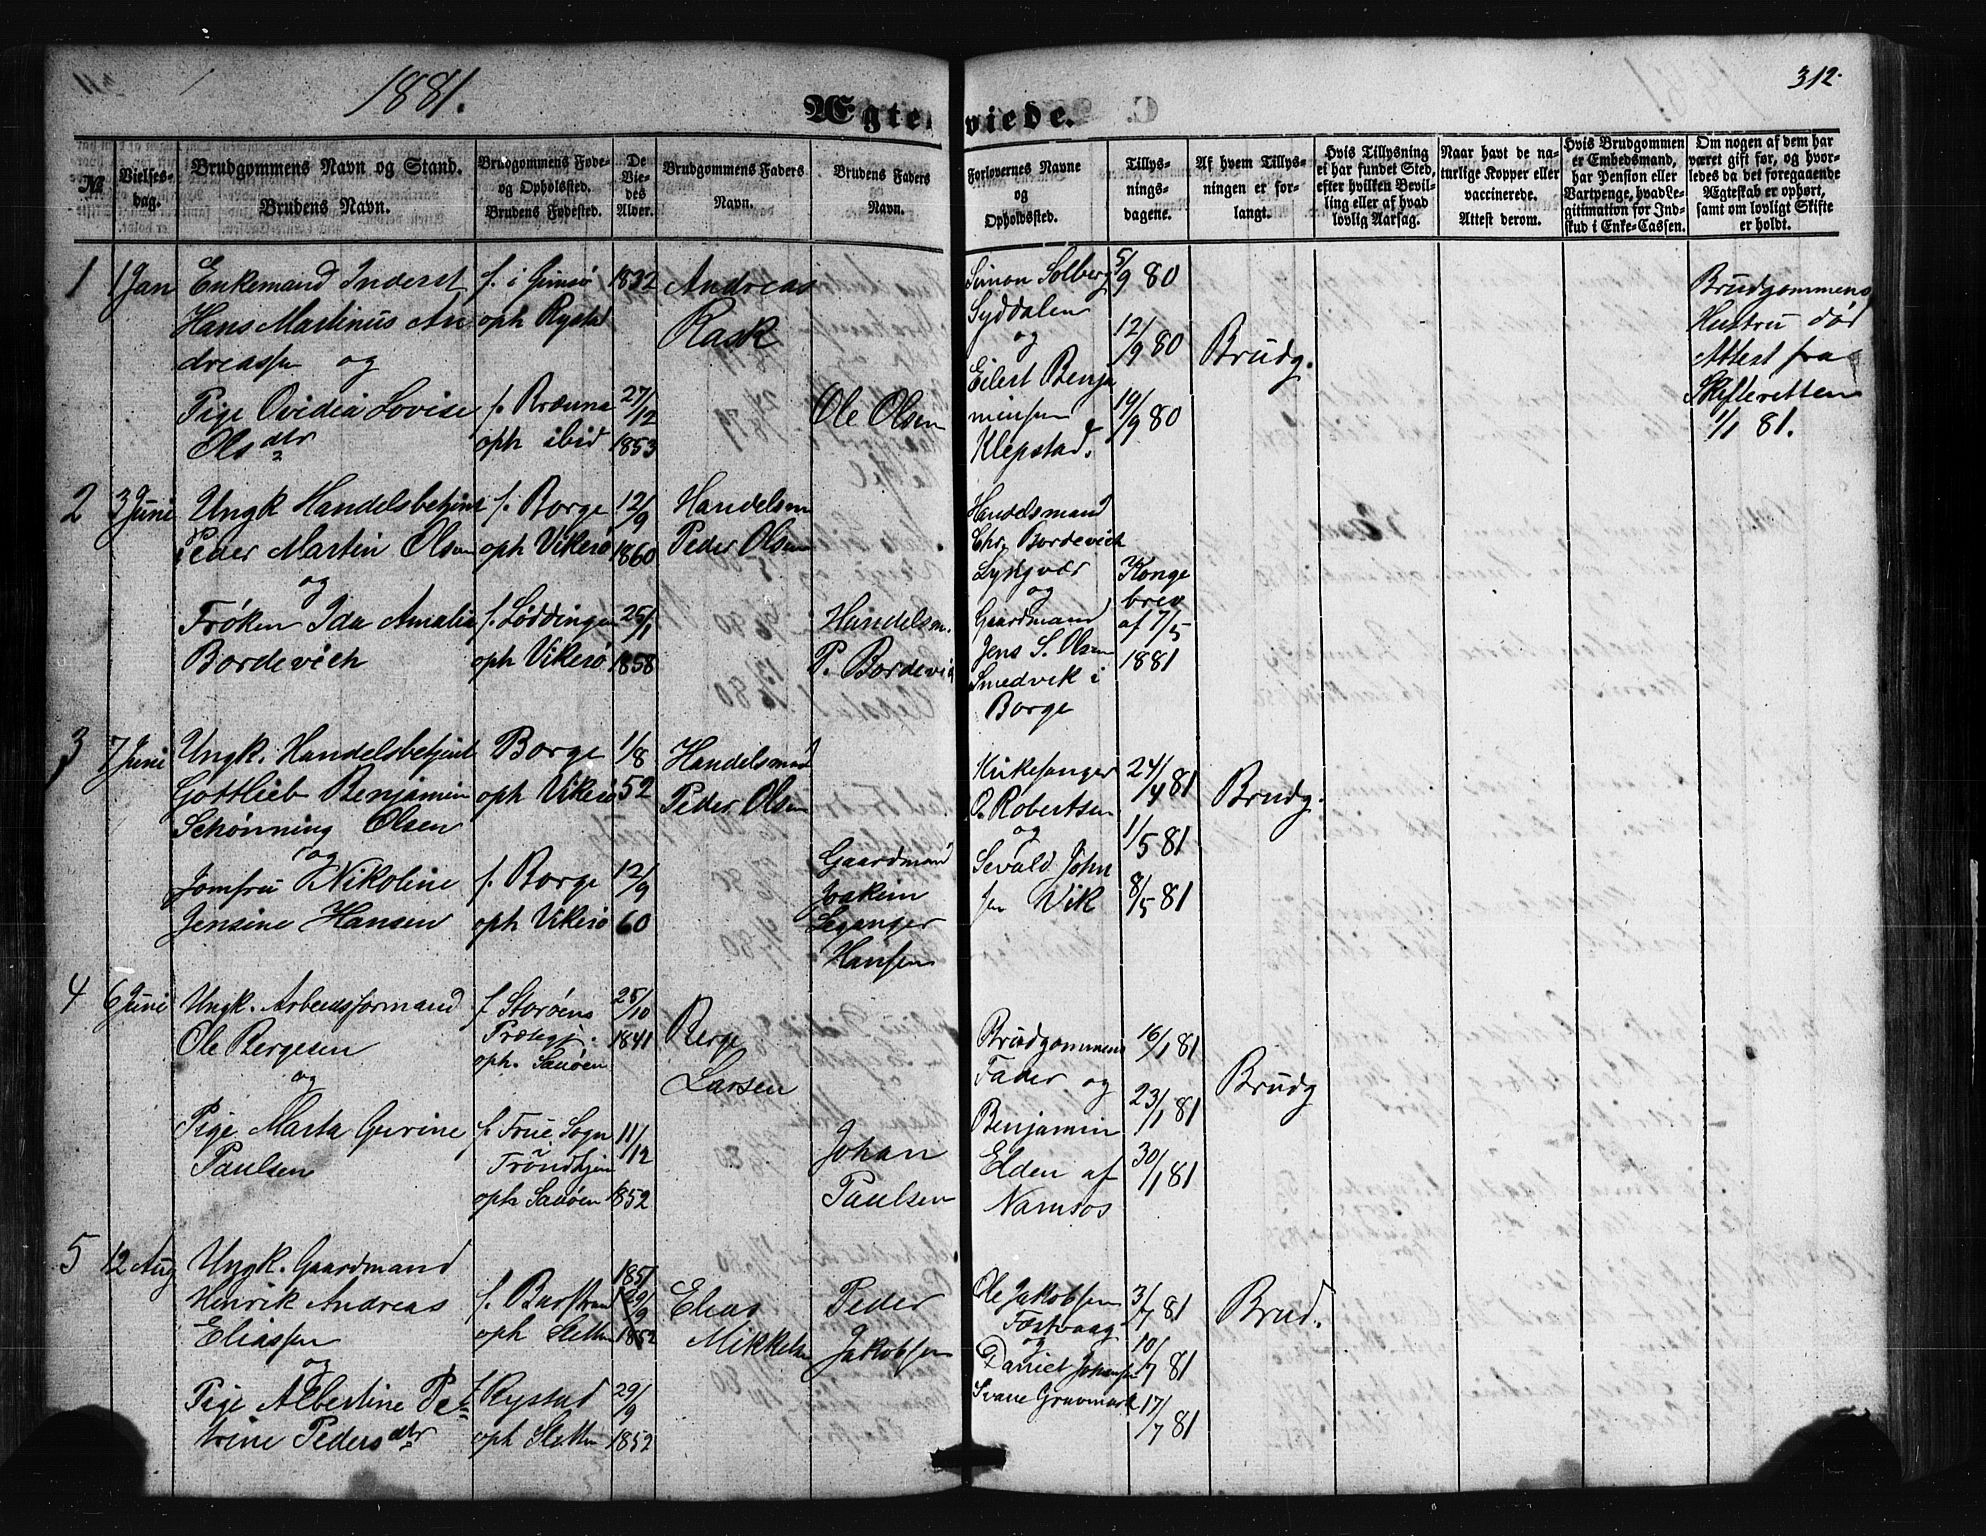 1881.
312.
Ægteviede.
№
Vielses-
dag.
Brudgommens Navn og Stand.
Brudens Navn.
Brudgommens Føde-
og Opholdssted.
Brudens Fødested.
De
Vie-
des
Alder.
Brudgommens Faders
Navn.
Brudens Faders
Navn.
Forlovernes Navne
og
Opholdssted.
Tillys-
nings-
dagene.
Af hvem Tillys-
ningen er for-
langt.
Hvis Tillysning
ei har fundet Sted,
efter hvilken Bevil-
ling eller af hvad
lovlig Aarsag.
Naar havt de na-
turlige Kopper eller
vaccinerede.
Attest derom.
Hvis Brudgommen
er Embedsmand,
har Pension eller
Vartpenge, hvad Le-
gitimation for Ind-
skud i Enke-Cassen.
Om nogen af dem har
været gift før, og hvor-
ledes da det foregaaende
Ægteskab er ophørt,
samt om lovligt Skifte
er holdt.
1
1 Jan
Enkemand Inderst
Hans Martinus An
dreassen og
Pige Ovidia Lovise
Olsdtr
f. i Gimsø
oph Rystad
f. Brænna
oph ibid
1832
27/12
1853
Andreas
Rask
Ole Olsen
Simon Solberg
Syddalen
og
Eilert Benja
minsen
Klepstad.
5/9 80
12/9 80
19/9 80
Brudg.
Brudgommens
Hustru død
Attest fra
Skifteretten
1/1 81.
2
3 Juni
Ungk Handelsbetjent
Peder Martin Olsen
og
Frøken Ida Amalia
Bordevich
f. Borge
oph Vikerø
f. Løddingen
oph Vikerø
12/9
1860
25/1
1858
Handelsm
Peder Olsen
Handelsm.
P. Bordevich
Handelsmand
Chr. Bordevich
Lyngvær
og
Gaardmand
Jens S. Olsen
Smedvik i
Borge
Konge
brev
af 7/5
1881
3
7 Juni
Ungk. Handelsbetjent
Gottlieb Benjamin
Schønning Olsen
og
Jomfru Nikoline
Jensine Hansen
Borge
oph Vikerø
f. Borge
oph Vikerø
1/8
52
12/9
60
Handelsmand
Peder Olsen
Gaardmand
Joakim
Leganger
Hansen
Kirkesanger
O. Robertsen
og
Sevald John
sen Vik
24/4 81
1/5 81
8/5 81
Brudg.
4
6 Juni
Ungk. Arbeidsformand
Ole Bergesen
og
Pige Marta Gurine
Paulsen
f. Storøens
Præstegj.
oph. Sauøen
f. Frue Sogn
Trondhjem
oph Sauøen
25/10
1841
11/12
1852
Berge
Larsen
Johan
Paulsen
Brudgommens
Fader og
Benjamin
Elden af
Namsos
16/1 81
23/1 81
30/1 81
Brudg
5
12 Aug
Ungk. Gaardmand
Henrik Andreas
Eliassen
og
Pige Albertine Pe=
trine Pedersdtr
f. Barstrand
oph Sletten
f Rystad
oph Sletten
1851
29/9
1852
29/9
1852
Elias
Mikkelsen
Peder
Jakobsen
Ole Jakobsen
Festvaag
og
Daniel Johansen
Svane Gravmark
3/7 81
10/7 81
17/7 81
Brud.